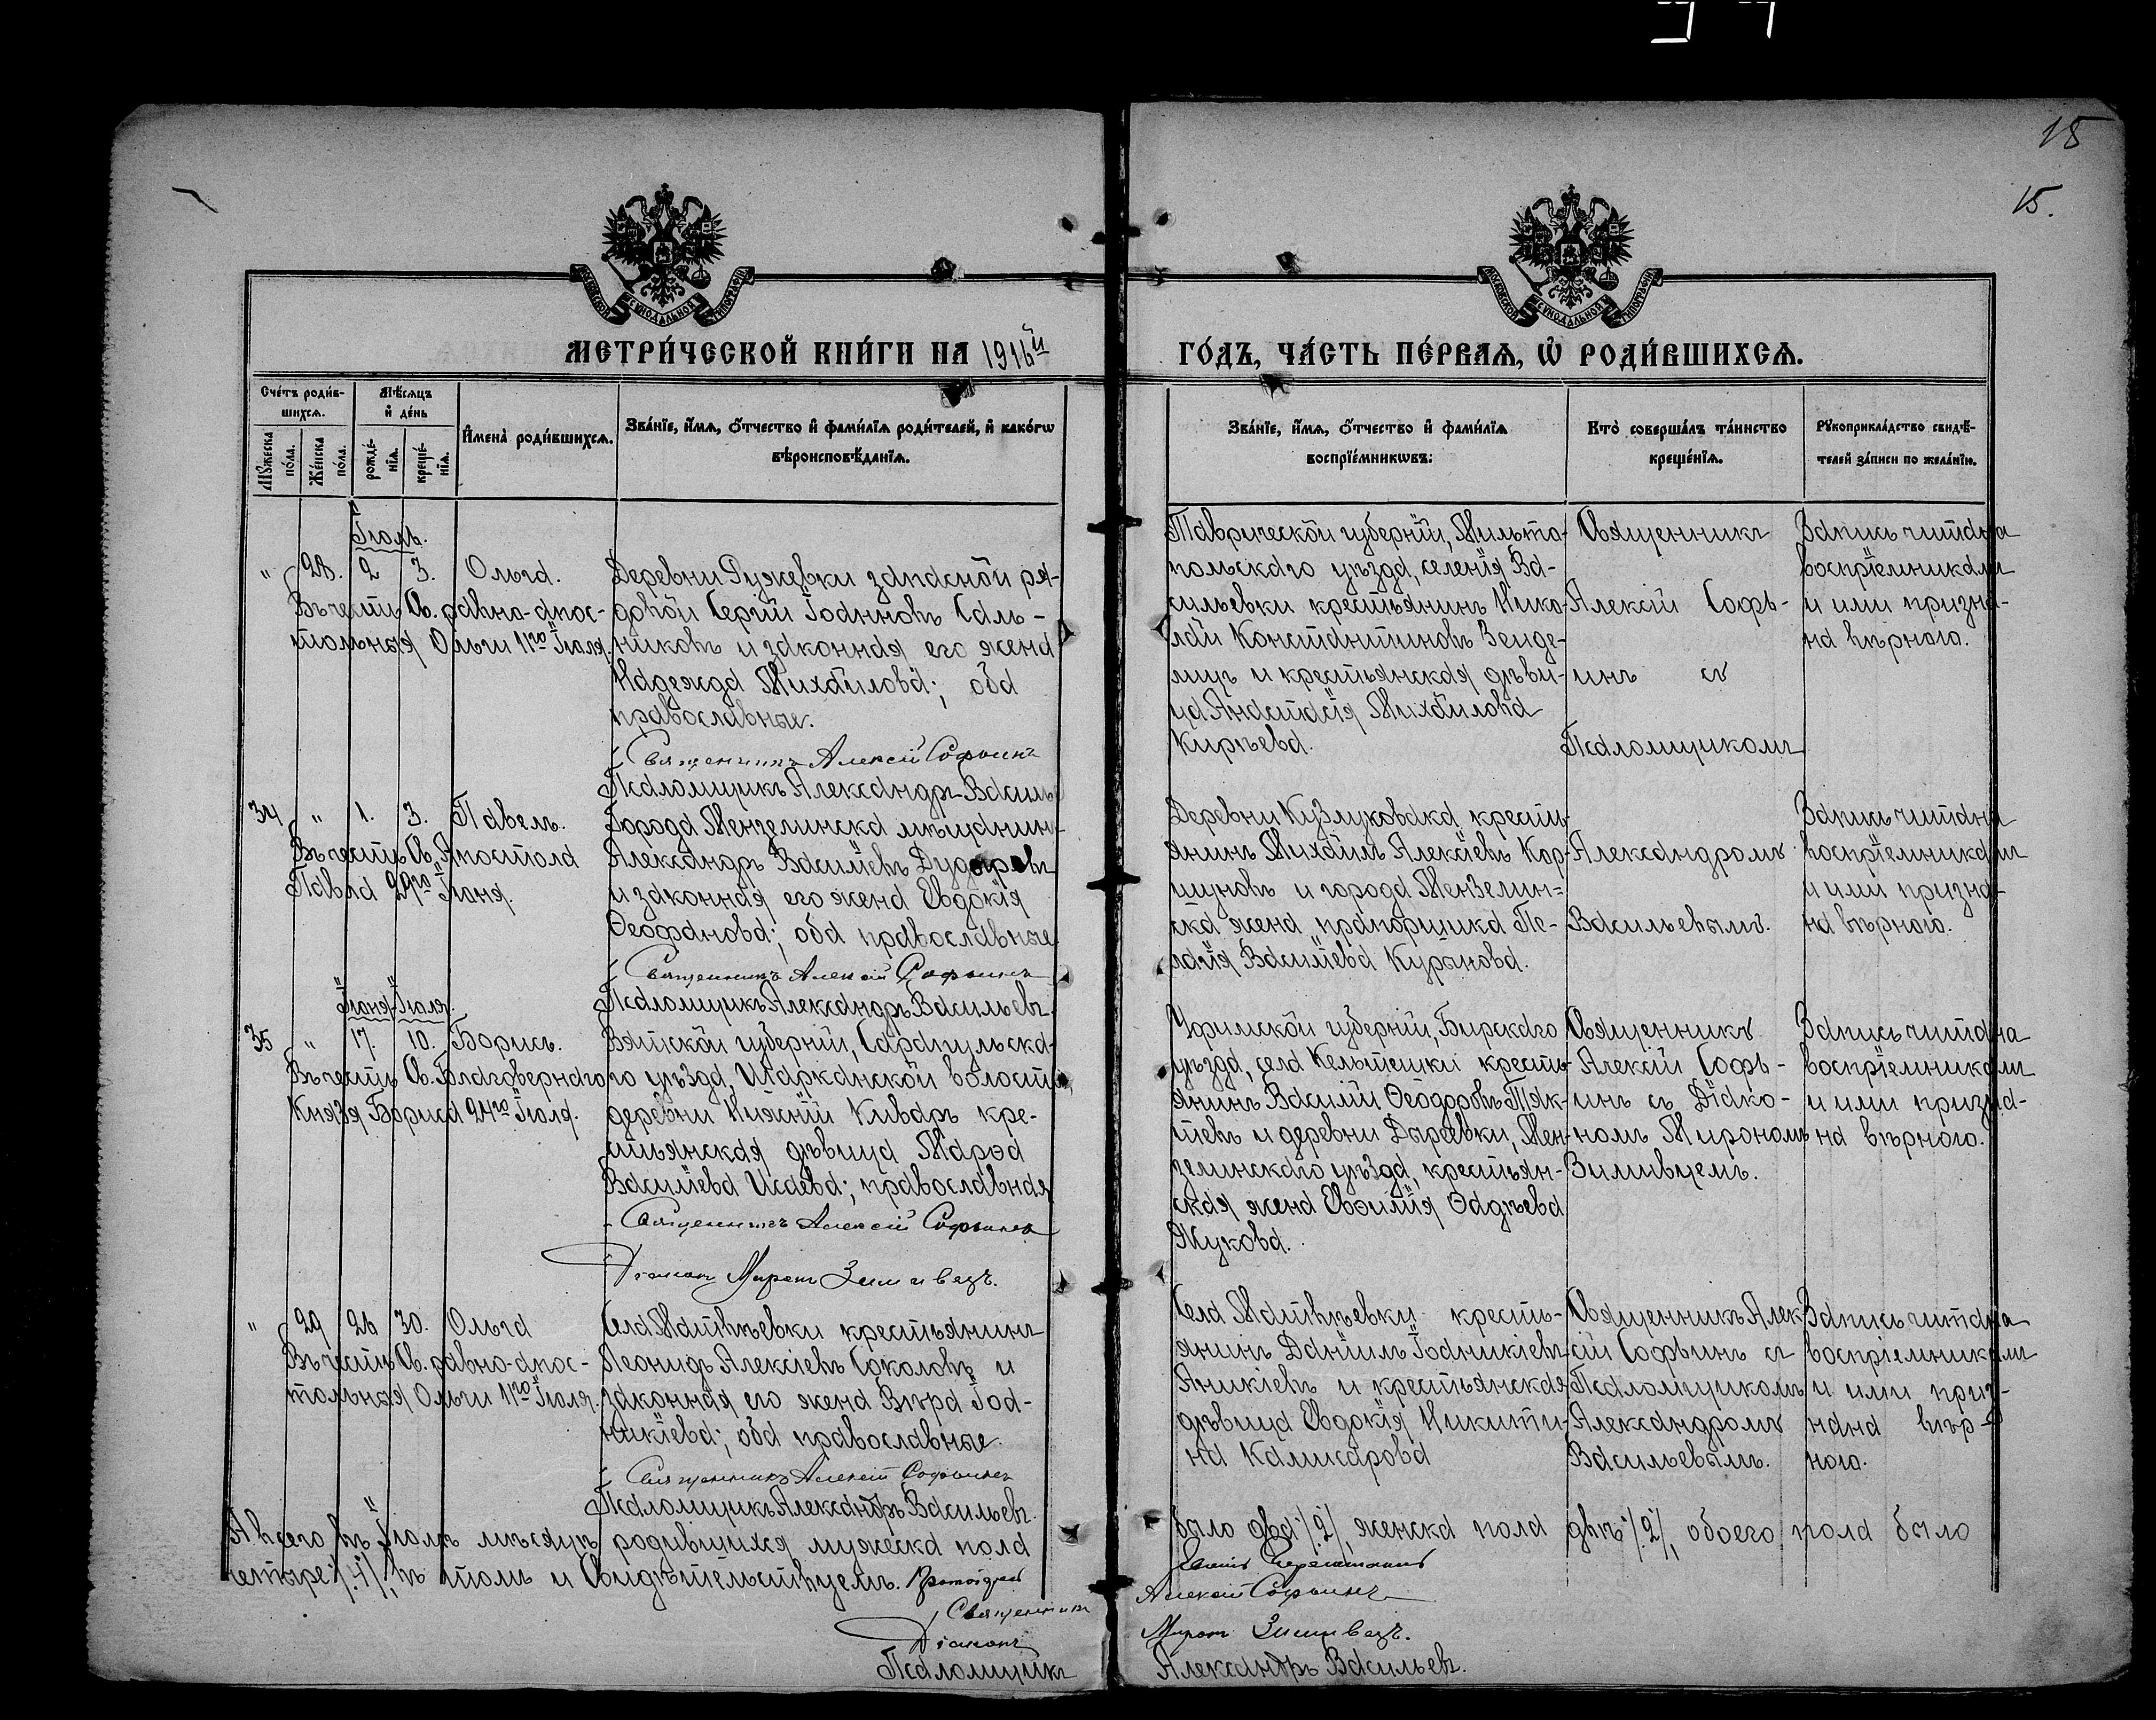 15
15.
МОСКОВСКОЙ СѴНОДАЛЬНОЙ ТИПОГРАФІИ
МОСКОВСКОЙ СѴНОДАЛЬНОЙ ТИПОГРАФІИ
МЕТРИ́ЧЕСКОЙ КНИ́ГИ НА 1916й
ГО́ДЪ, ЧА́СТЬ ПЕ́РВАЯ, Ѽ РОДИ́ВШИХСЯ.
Сче́тъ роди́в-
шихся.
Мѣ́сяцъ
и҆ де́нь
Мꙋ́жеска по́ла.
Же́нска по́ла.
рожде́-
нїя.
креще́-
нїя.
И҆мена̀ роди́вшихся.
Зва́нїе, и҆́мя, ѻ҆́тчество и҆ фами́лїя роди́телей, и҆ како́гѡ
вѣроисповѣ́данїя.
Зва́нїе, и҆́мя, ѻ҆́тчество и҆ фами́лїя
воспрїе́мникѡвъ:
Кто̀ соверша́лъ та́инство
креще́нїя.
Рꙋкоприкла́дство свидѣ́-
телей за́писи по жела́нїю.
Іюль.
" 28. 2 3. Ольга.
Въ честь Св. равно-апос-
тольная Ольги 11го Іюля.
Деревни Ружевки запасной ря-
довой Сергій Іоанновъ Саль-
никовъ и законная его жена
Надежда Михайлова; оба
православные.
Священникъ Алексій Софьинъ
Псаломщикъ Александръ Василь
Таврической губерніи, Мильто-
польскаго уѣзда, селенія Ва-
сильевки крестьянинъ Нико-
лай Константиновъ Зенде-
лицъ и крестьянская дѣви-
ца Анастасія Михайлова
Кирѣева.
Священникъ
Алексій Софь-
инъ съ
Псаломщикомъ
Запись читана
воспріемникали
и ими призна-
на вѣрною.
34 " 1. 3. Павелъ.
Въ честь Св. Апостола
Павла 29го Іюня.
Города Мензелинска мѣщанинъ
Александръ Васильевъ Дударевъ
и законная его жена Евдокія
Ѳеофанова; оба православные
Священникъ Алексій Софьинъ
Псаломщикъ Александръ Васильев.
Деревни Кузлуковака кресть-
янинъ Михаилъ Алексіевъ Кор-
шуновъ и города Мензелин-
ска жена прапорщика Пе-
лагія Васильева Куранова.
Александромъ
Васильевымъ.
Запись читана
воспріемникамъ
и ими призна-
на вѣрною.
Іюня-Іюля.
35 " 17. 10. Борисъ.
Въ честь Св. Благовернаго
Князя Бориса 24го Іюля.
Вятской губерніи, Сарапульска-
го уѣзда, Шарканской волости
деревни Нижній Кивара кре-
стьянская дѣвица Марѳа
Васильева Исаева; православная
Священникъ Алексій Софьинъ
Діаконъ Миронъ Зимивецъ.
Уфимской губерніи, Бирскаго
уѣзда, села Кельтешки кресть-
янинъ Василій Ѳеодоровъ Тяк-
тевъ и деревни Дыреевки, Мен-
зелинскаго уѣзда, крестьян-
ская жена Евѳимія Ѳадѣева
Жукова.
Священникъ
Алексій Софь-
инъ съ Діако-
номъ Мирономъ
Зимивцемъ.
Запись читана
воспріемникамъ
и ими призна-
на вѣрною.
" 29 28 30. Ольга
Въ честь Св. равно-апос-
тольная Ольги 11го Іюля.
Села Матвѣевки крестьянинъ
Леонидъ Алексіевъ Соколовъ и
законная его жена Вѣра Іоа-
никіева; оба православные.
Священникъ Алексій Софьинъ
Псаломщикъ Александръ Васильев.
Села Матвѣевки кресть-
янинъ Даніилъ Іоанникіевъ
Аникіевъ и крестьянская
дѣвица Евдокія Никити-
на Камисарова
Священникъ Алек-
сій Софьинъ съ
Псаломщикомъ
Александромъ
Васильевымъ.
Запись читана
воспріемникамъ
и ими приз-
нана вѣр-
ною.
А всего въ Іюлѣ мѣсяцѣ родившихся мужеска пола было два /2/, женска пола двѣ /2/, обоего пола было
четыре /4/, въ томъ и Свидѣтельствуемъ. Протоіерей
Священникъ Алексій Софьинъ
Діаконъ Миронъ Зимивецъ.
Псаломщикъ Александръ Васильев.